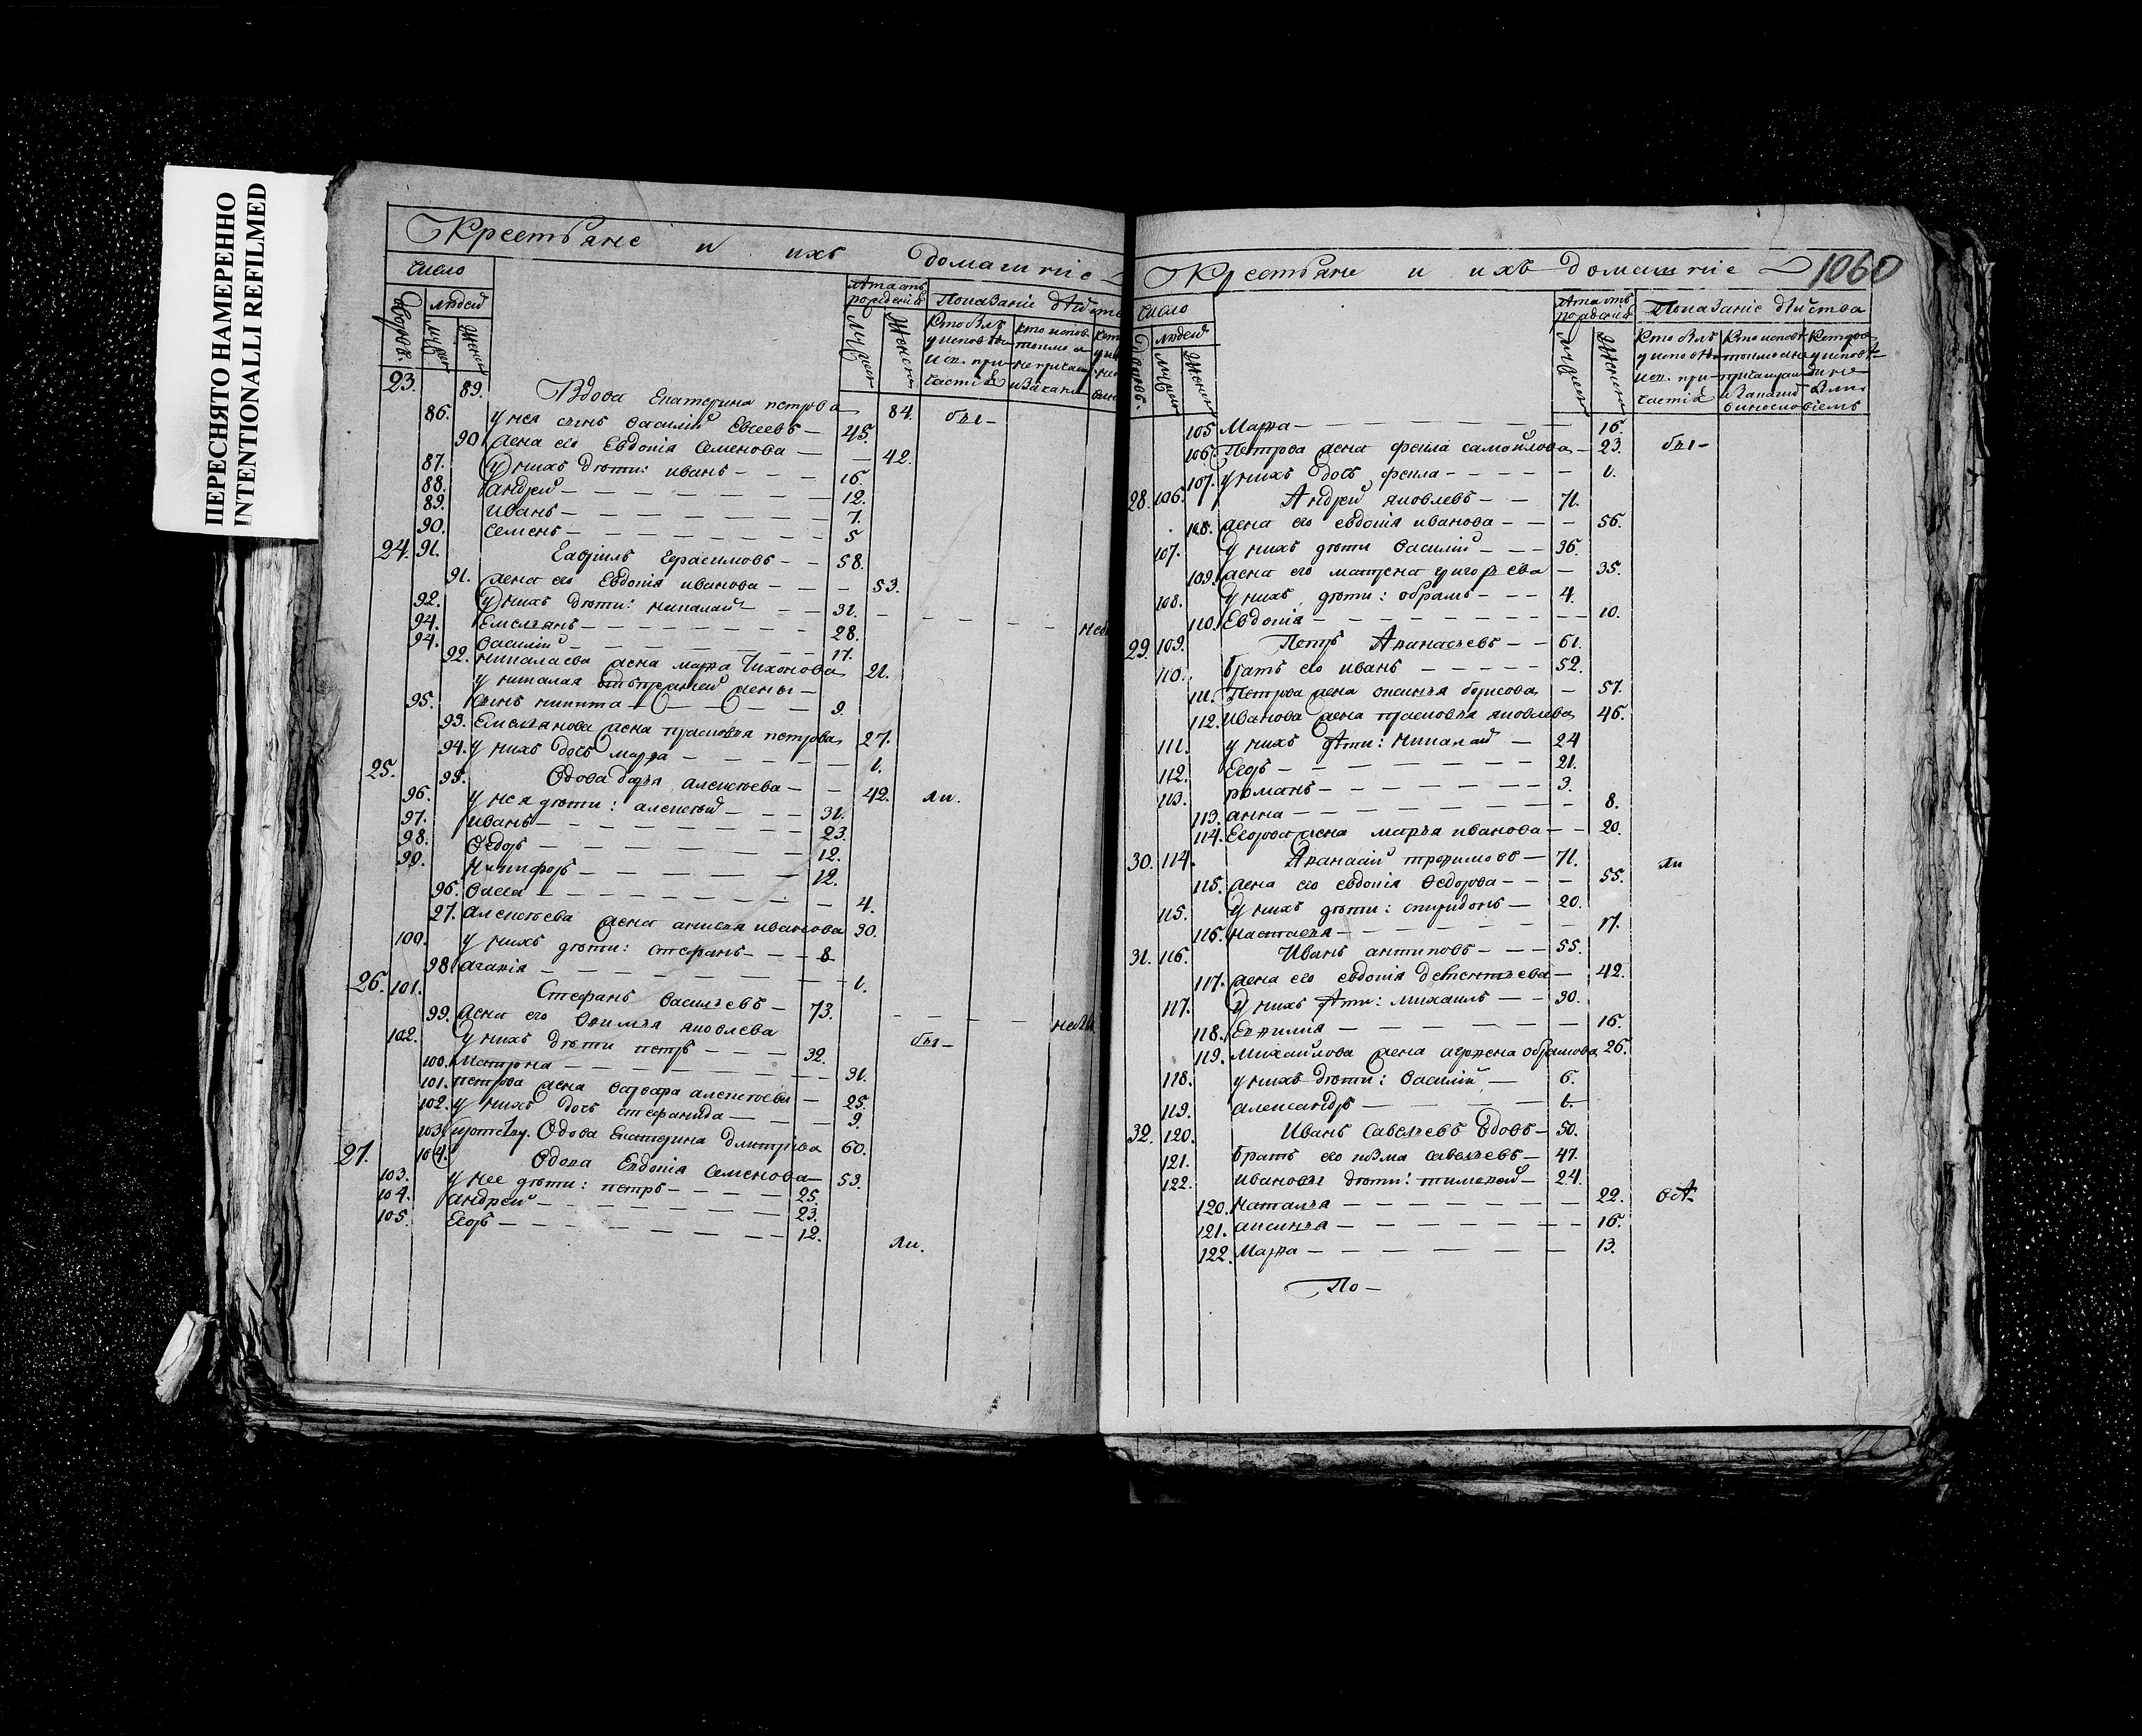 ПЕРЕСНЯТО НАМЕРЕННО
INTENTIONALLI REFILMED
Крестьяне и ихъ домашніе
число
дворовъ. людей
мужеск женск
лѣта отъ рожденія
мужеск женск
Показаніе дѣйст
23. 89. Вдова Екатерина петрова 84. бы-
86. у нея сынъ василій Евсеевъ 45.
90 жена его Евдокія Семенова 42.
87. у нихъ дѣти: иванъ 16.
88. андрей 12.
89. иванъ 7.
90. семенъ 5
24. 91. Гаврілъ Герасимовъ 58.
91. жена его Евдокія иванова 53.
92. у нихъ дѣти: николай 31.
94. Емельянъ 28.
94. василій 17.
92. николаева жена марѳа Тихонова 21.
у николая отъ прежней жены
95. сынъ никита 9.
93. Емельянова жена прасковья петрова 27.
94. у нихъ дочь марѳа 1.
25. 95. вдова дарья алексѣева 42. ли.
96. у нея дѣти: алексѣй 31.
97. иванъ 23.
98. Ѳедоръ 12.
99. Никифоръ 12.
96. Олга 4.
27. алексѣева жена анисья иванова 30.
100. у нихъ дѣти: стефанъ 8
98. агапія 1.
26. 101. Стефанъ васильевъ 73.
99. жена его яковлева
102. у нихъ дѣти петръ 32. бы-
100. Матрона 31.
101. петрова жена варвара алексѣева 25.
102. у нихъ дочь стефанида 9.
103. вдова Екатерина Димтріева 60.
27. 104. вдова Евдокія Семенова 53.
103. у нее дѣти: петръ 25.
104. андрей 23.
105. Егоръ 12. ли.
Крестьяне и ихъ домашніе 1060
число
людей
мужеск женск
лѣта отъ рожденія
мужеск женск
Показаніе дѣйства
105 Марѳа 16.
106. Петрова жена фекла самойлова 23. бы-
107. у нихъ дочь фекла 1.
28. 106. Андрей яковлевъ 71.
108. жена его евдокія иванова 56.
107. у нихъ дѣти василій 36.
109. жена его матрена григорьева 35.
108. у нихъ дѣти: абрамъ 4.
110. Евдокія 10.
29. 109. Петръ Аѳанасьевъ 61.
110. братъ его иванъ 52.
111. Петрова жена аксинья борисова 57.
112. Иванова жена прасковья яковлева 46.
111. у нихъ дѣти: Николай 24
112. Егоръ 21.
113. романъ 3.
113. анна 8.
114. Егорова жена марья иванова 20.
30. 114. Аѳанасій троѳимовъ 71. ли
115. жена его евдокія Ѳедорова 55.
115. у нихъ дѣти: спиридонъ 20.
116. настасья 17.
31. 116. Иванъ антиповъ 55.
117. жена его евдокія дементьева 42.
117. у нихъ дѣти: михаилъ 30.
118. Еѳимія 16.
119. Михайлова жена аграѳена абрамова 26.
118. у нихъ дѣти: василій 6.
119. александръ 1.
32. 120. Иванъ Савельевъ вдовъ 50.
121. братъ его козма савельевъ 47.
122. ивановы дѣти: тимоѳей 24.
120. Наталья 22.
121. аксинья 16.
122. Марѳа 13.
По-